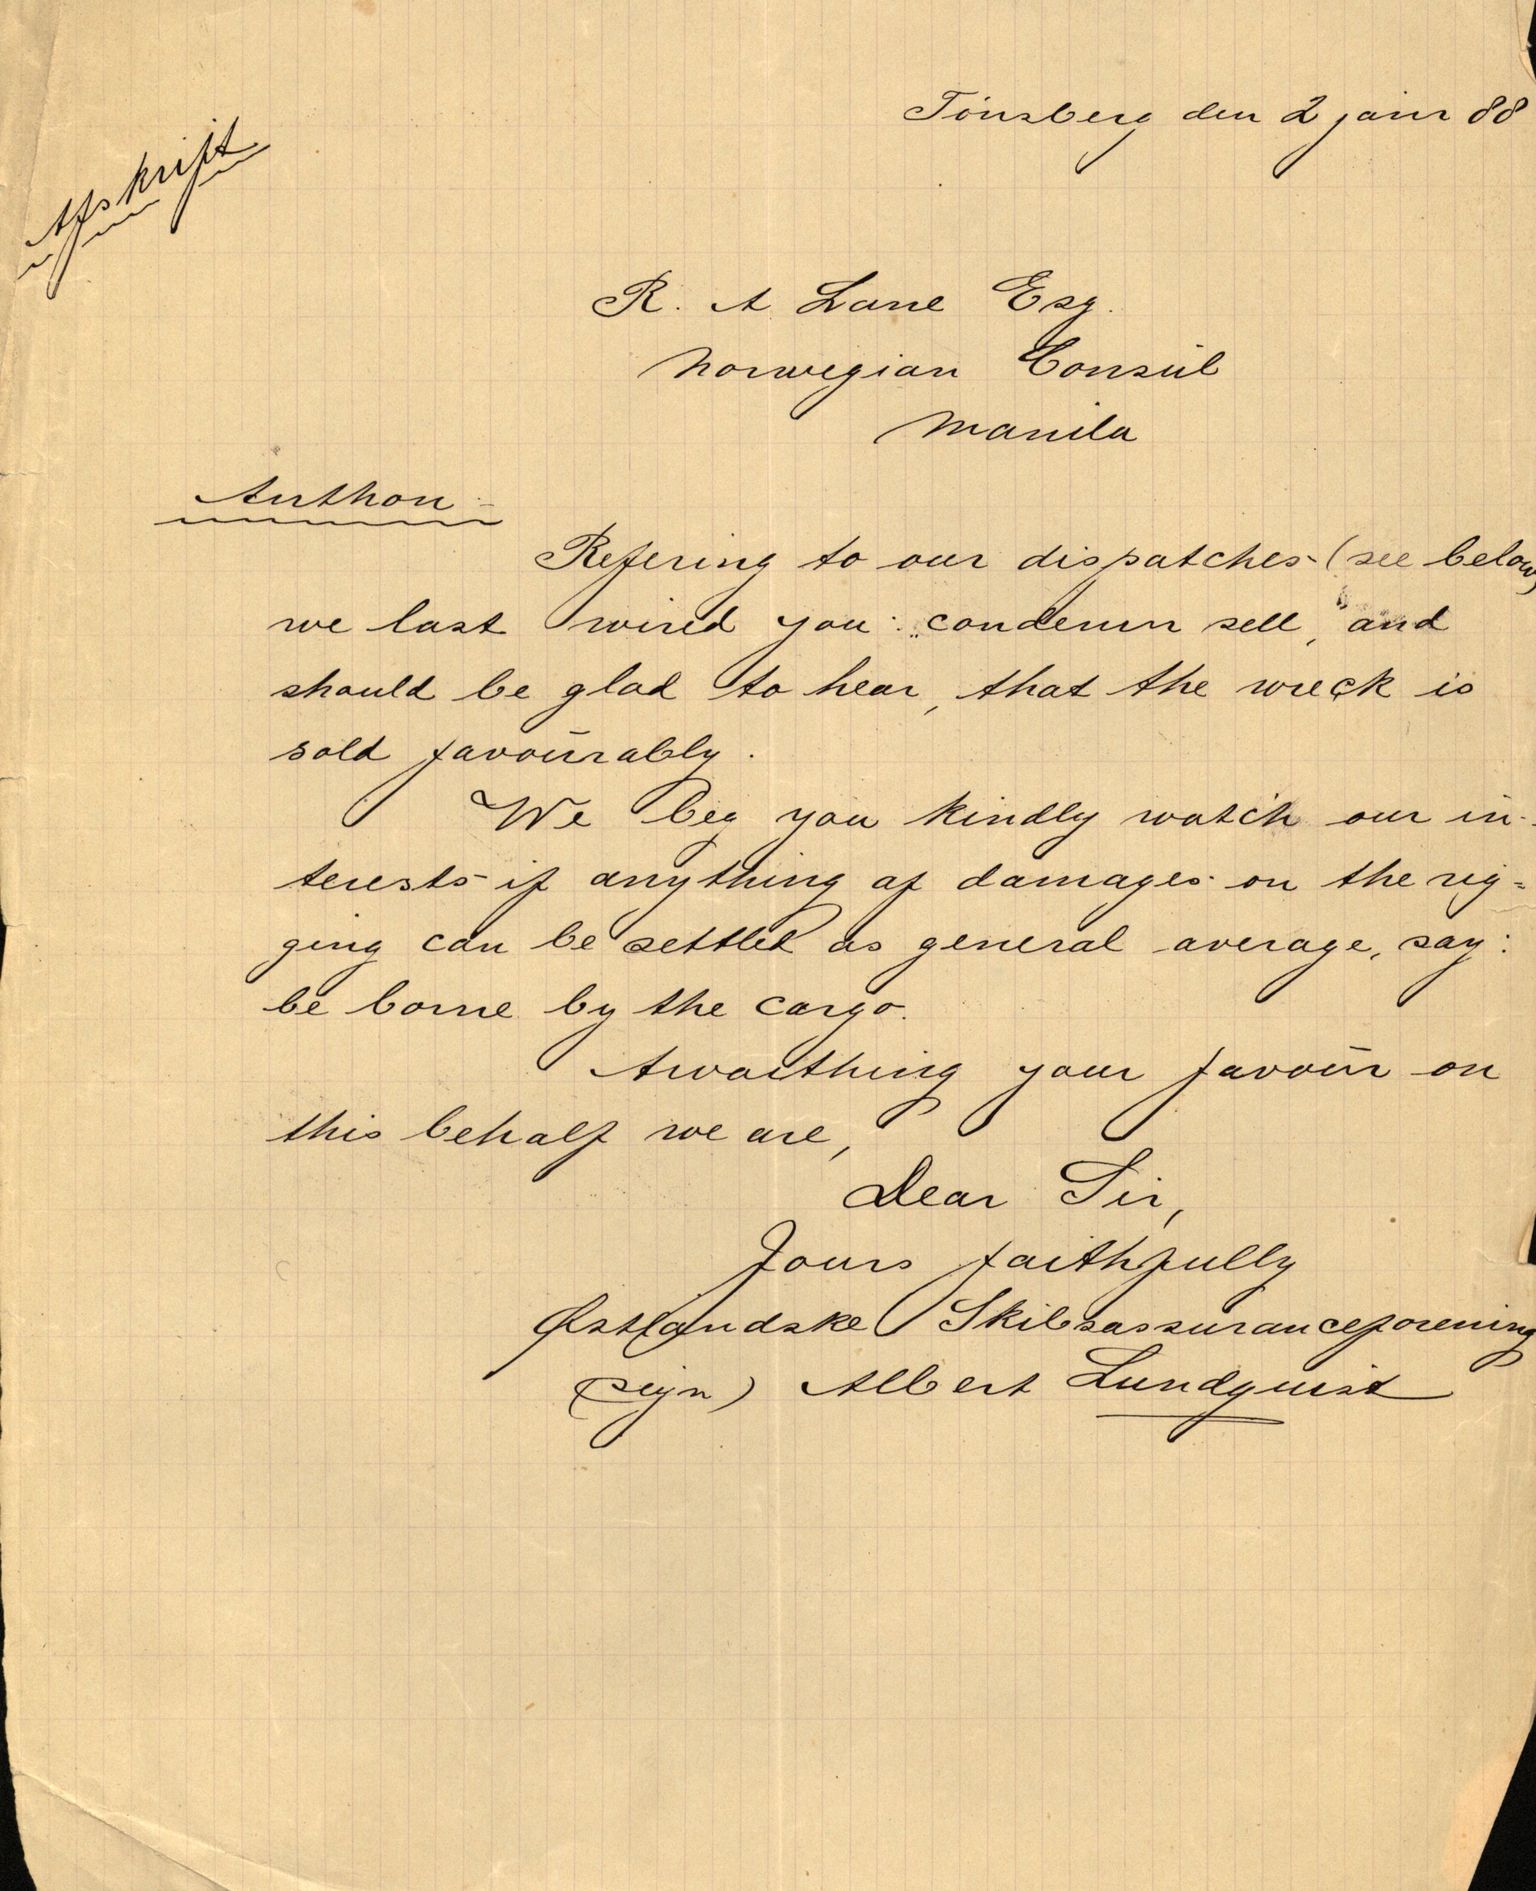 Afskrift
Tönsberg den 2 janr 88
R. A Lane Esq.
Norwegian Consul
Manila
Anthon
Refering to our dispatches (see below)
we last wired you: „condemn sell", and
should be glad to hear, that the wreck is
sold favourably.
We beg you kindly watch our in-
terests if anything af damages on the rig=
ging can be settled as general average, say:
be borne by the cargo.
Awaithing your favour on
this behalf we are,
Dear Sir,
Yours faithfully
Østlandske Skibsassuranceforening
(sign) Albert Lundquist